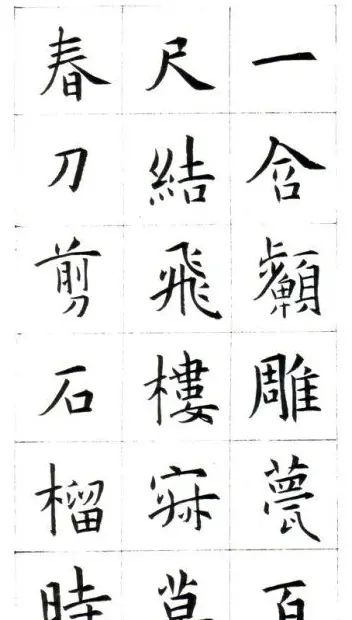 一含顰雕甍百
尺結飛樓寐
春刀剪石榴時